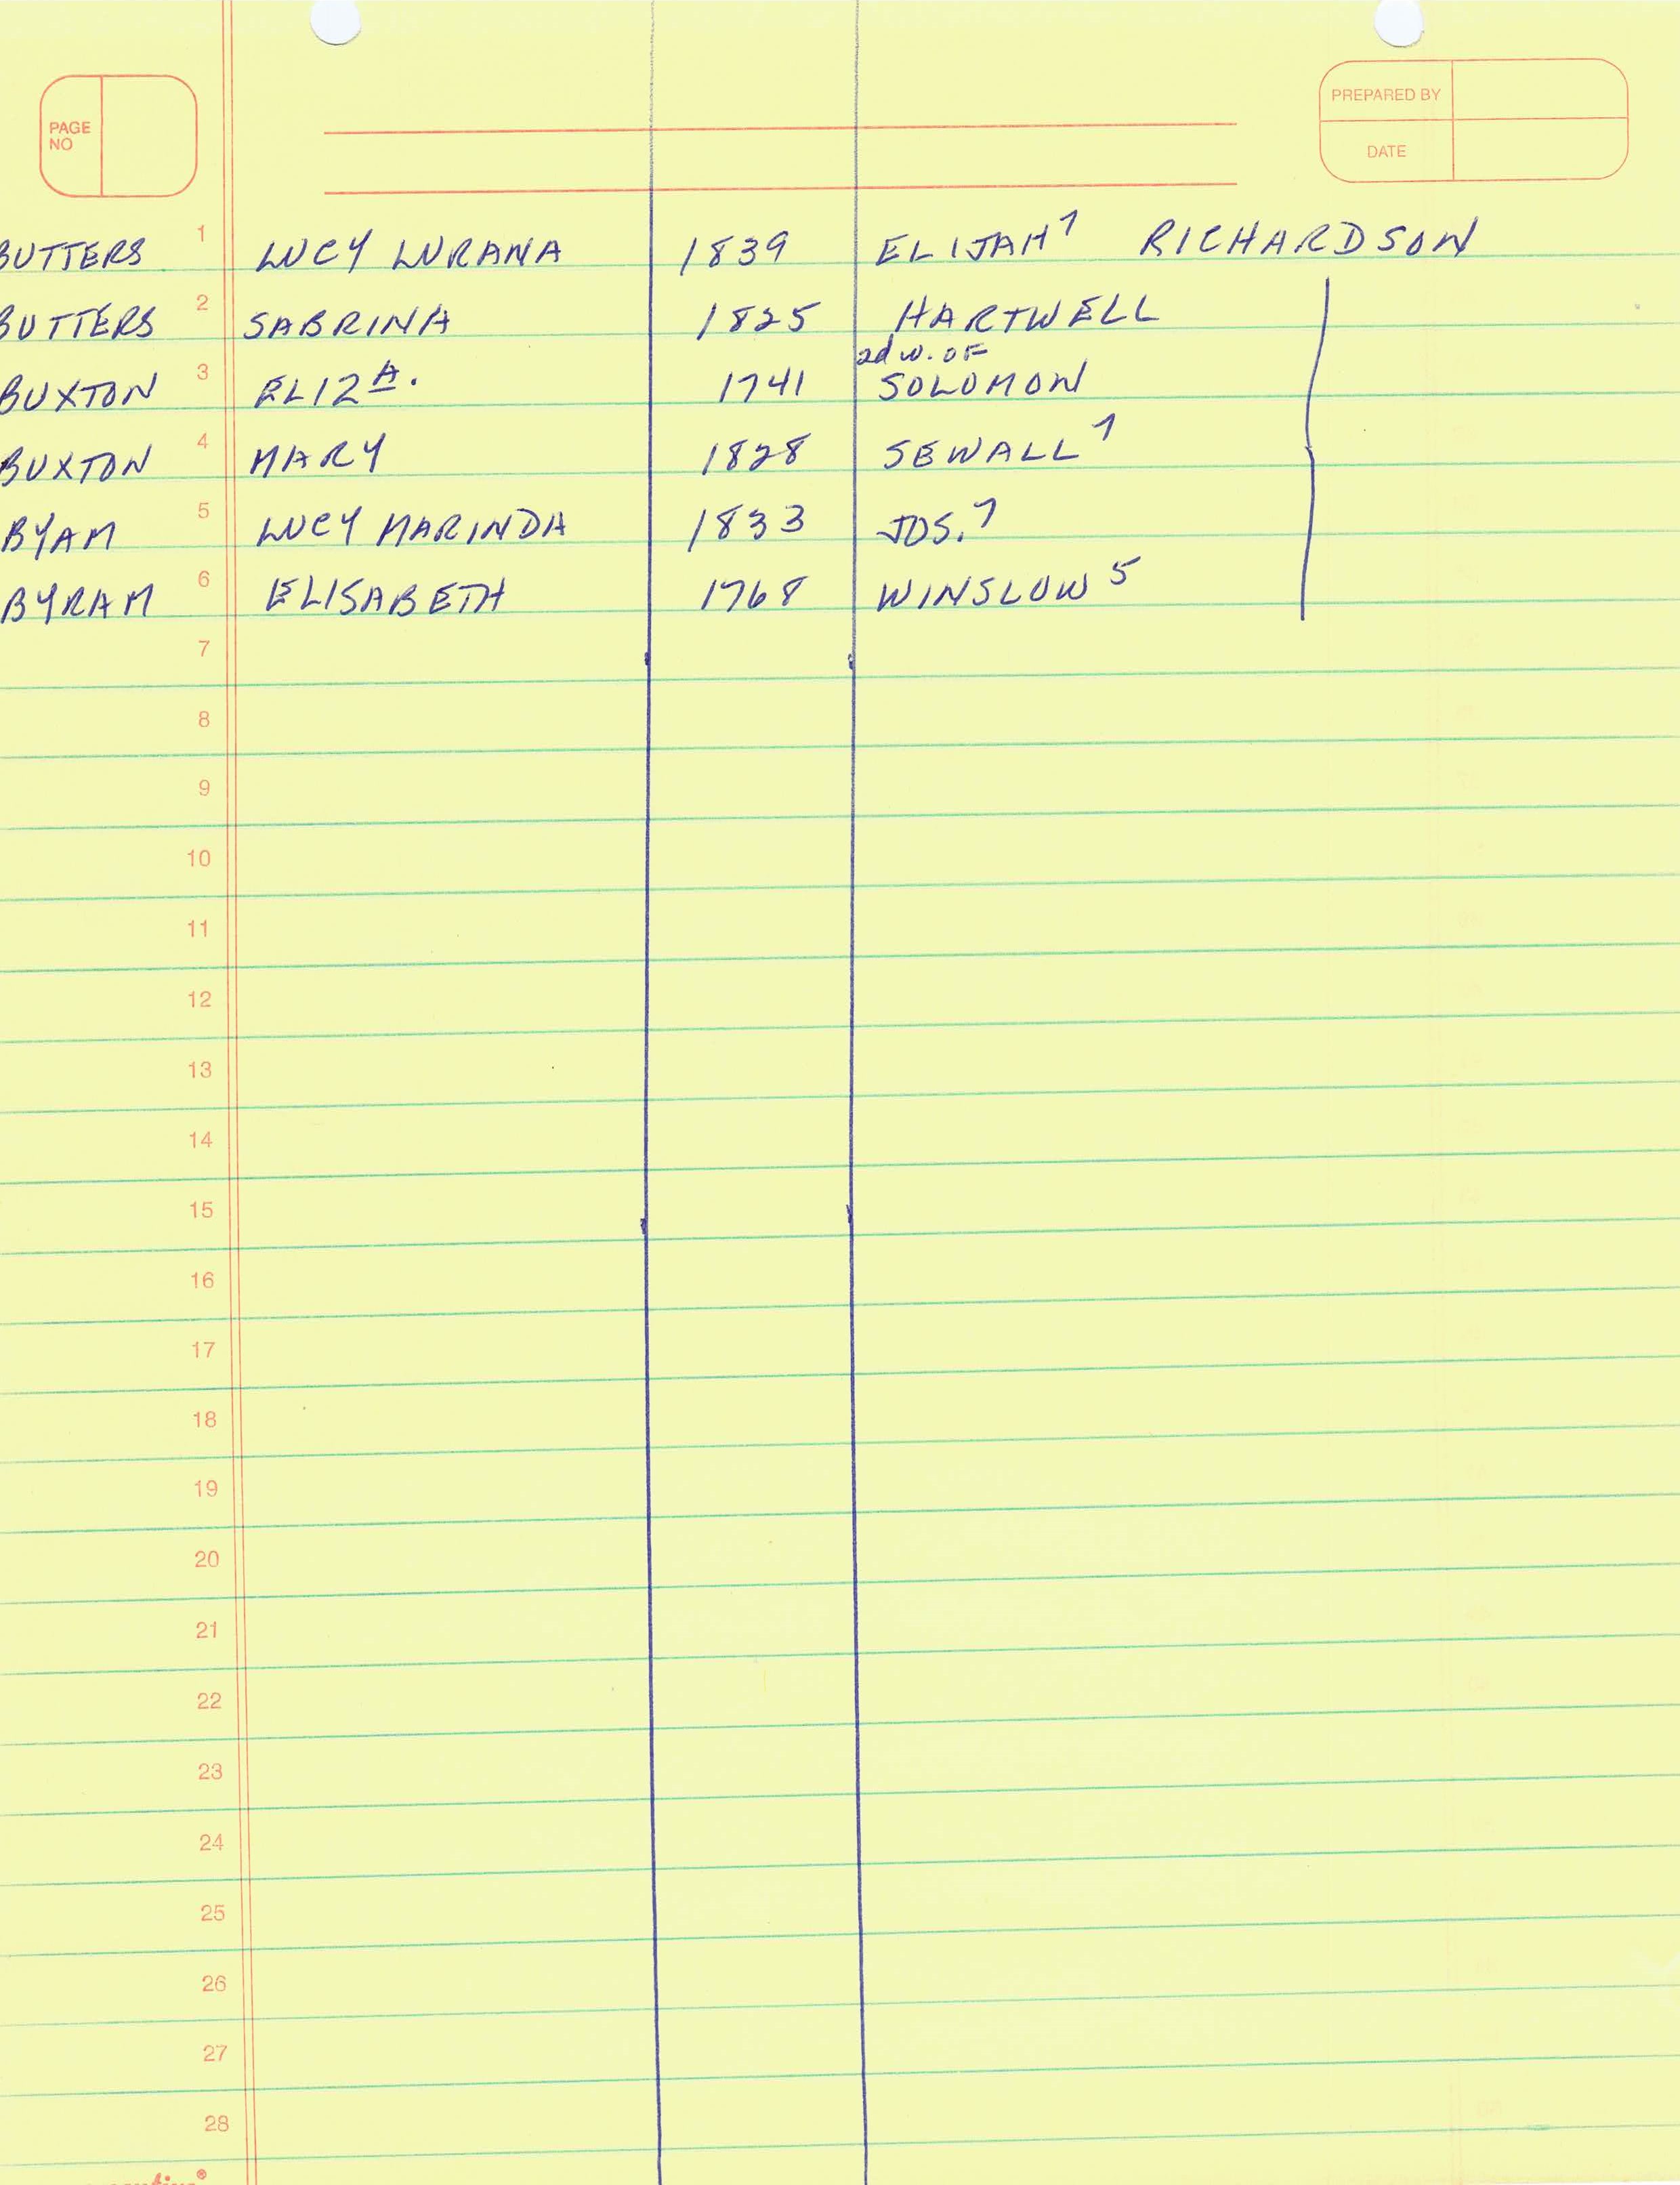 PAGE NO
PREPARED BY
DATE
BUTTERS 1 LUCY LURANA 1839 ELIJAH⁷ RICHARDSON
BUTTERS 2 SABRINA 1825 HARTWELL
2d W. OF
BUXTON 3 ELIZA. 1741 SOLOMON
BUXTON 4 MARY 1828 SEWALL⁷
BYAM 5 LUCY MARINDA 1833 JOS.⁷
BYRAM 6 ELISABETH 1768 WINSLOW⁵
7
8
9
10
11
12
13
14
15
16
17
18
19
20
21
22
23
24
25
26
27
28